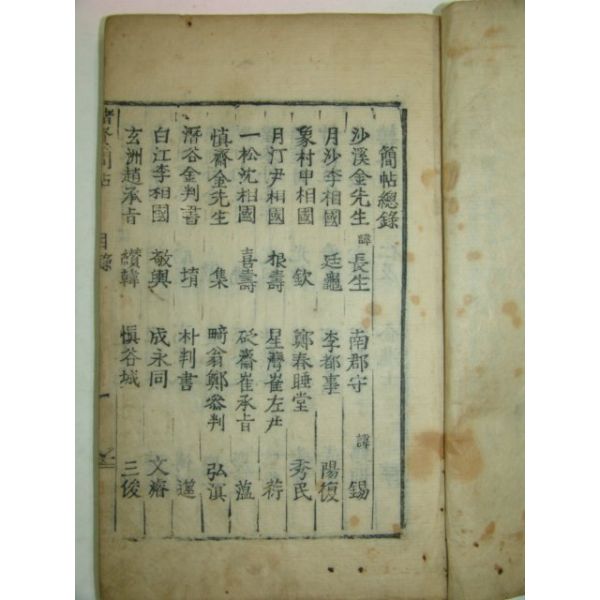 簡帖總錄
沙溪金先生 諱 長生 南郡守 諱 錫
月沙李相國 廷龜 李都事 陽復
象村申相國 欽 鄭春睡堂 秀民
月汀尹相國 根壽 星灣崔左尹 荇
一松沈相國 喜壽 砭齋崔承旨 蘊
愼齋金先生 集 畸翁鄭參判 弘溟
潛谷金判書 堉 朴判書 遾
白江李相國 敬輿 成永同 文濬
玄洲趙承旨 纘韓 愼谷城 三俊
諸賢簡帖 目錄 一